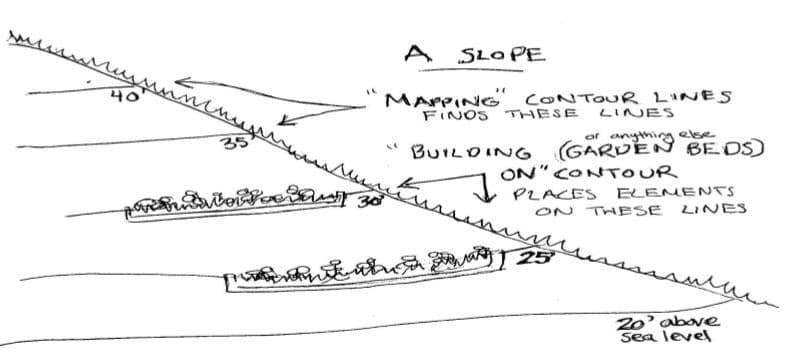 A SLOPE
"MAPPING" CONTOUR LINES
FINDS THESE LINES
or anything else
"BUILDING (GARDEN BEDS)
ON" CONTOUR
PLACES ELEMENTS
ON THESE LINES
40'
35'
30'
25'
20' above
sea level